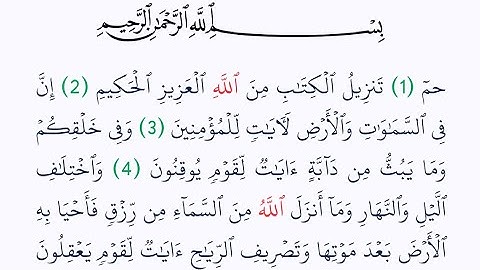 بِسْمِ ٱللَّهِ ٱلرَّحْمَٰنِ ٱلرَّحِيمِ
حمٓ (1) تَنزِيلُ ٱلْكِتَٰبِ مِنَ ٱللَّهِ ٱلْعَزِيزِ ٱلْحَكِيمِ (2) إِنَّ
فِى ٱلسَّمَٰوَٰتِ وَٱلْأَرْضِ لَءَايَٰتٍ لِّلْمُؤْمِنِينَ (3) وَفِى خَلْقِكُمْ
وَمَا يَبُثُّ مِن دَآبَّةٍ ءَايَٰتٌ لِّقَوْمٍ يُوقِنُونَ (4) وَٱخْتِلَٰفِ
ٱلَّيْلِ وَٱلنَّهَارِ وَمَآ أَنزَلَ ٱللَّهُ مِنَ ٱلسَّمَآءِ مِن رِّزْقٍ فَأَحْيَا بِهِ
ٱلْأَرْضَ بَعْدَ مَوْتِهَا وَتَصْرِيفِ ٱلرِّيَٰحِ ءَايَٰتٌ لِّقَوْمٍ يَعْقِلُونَ